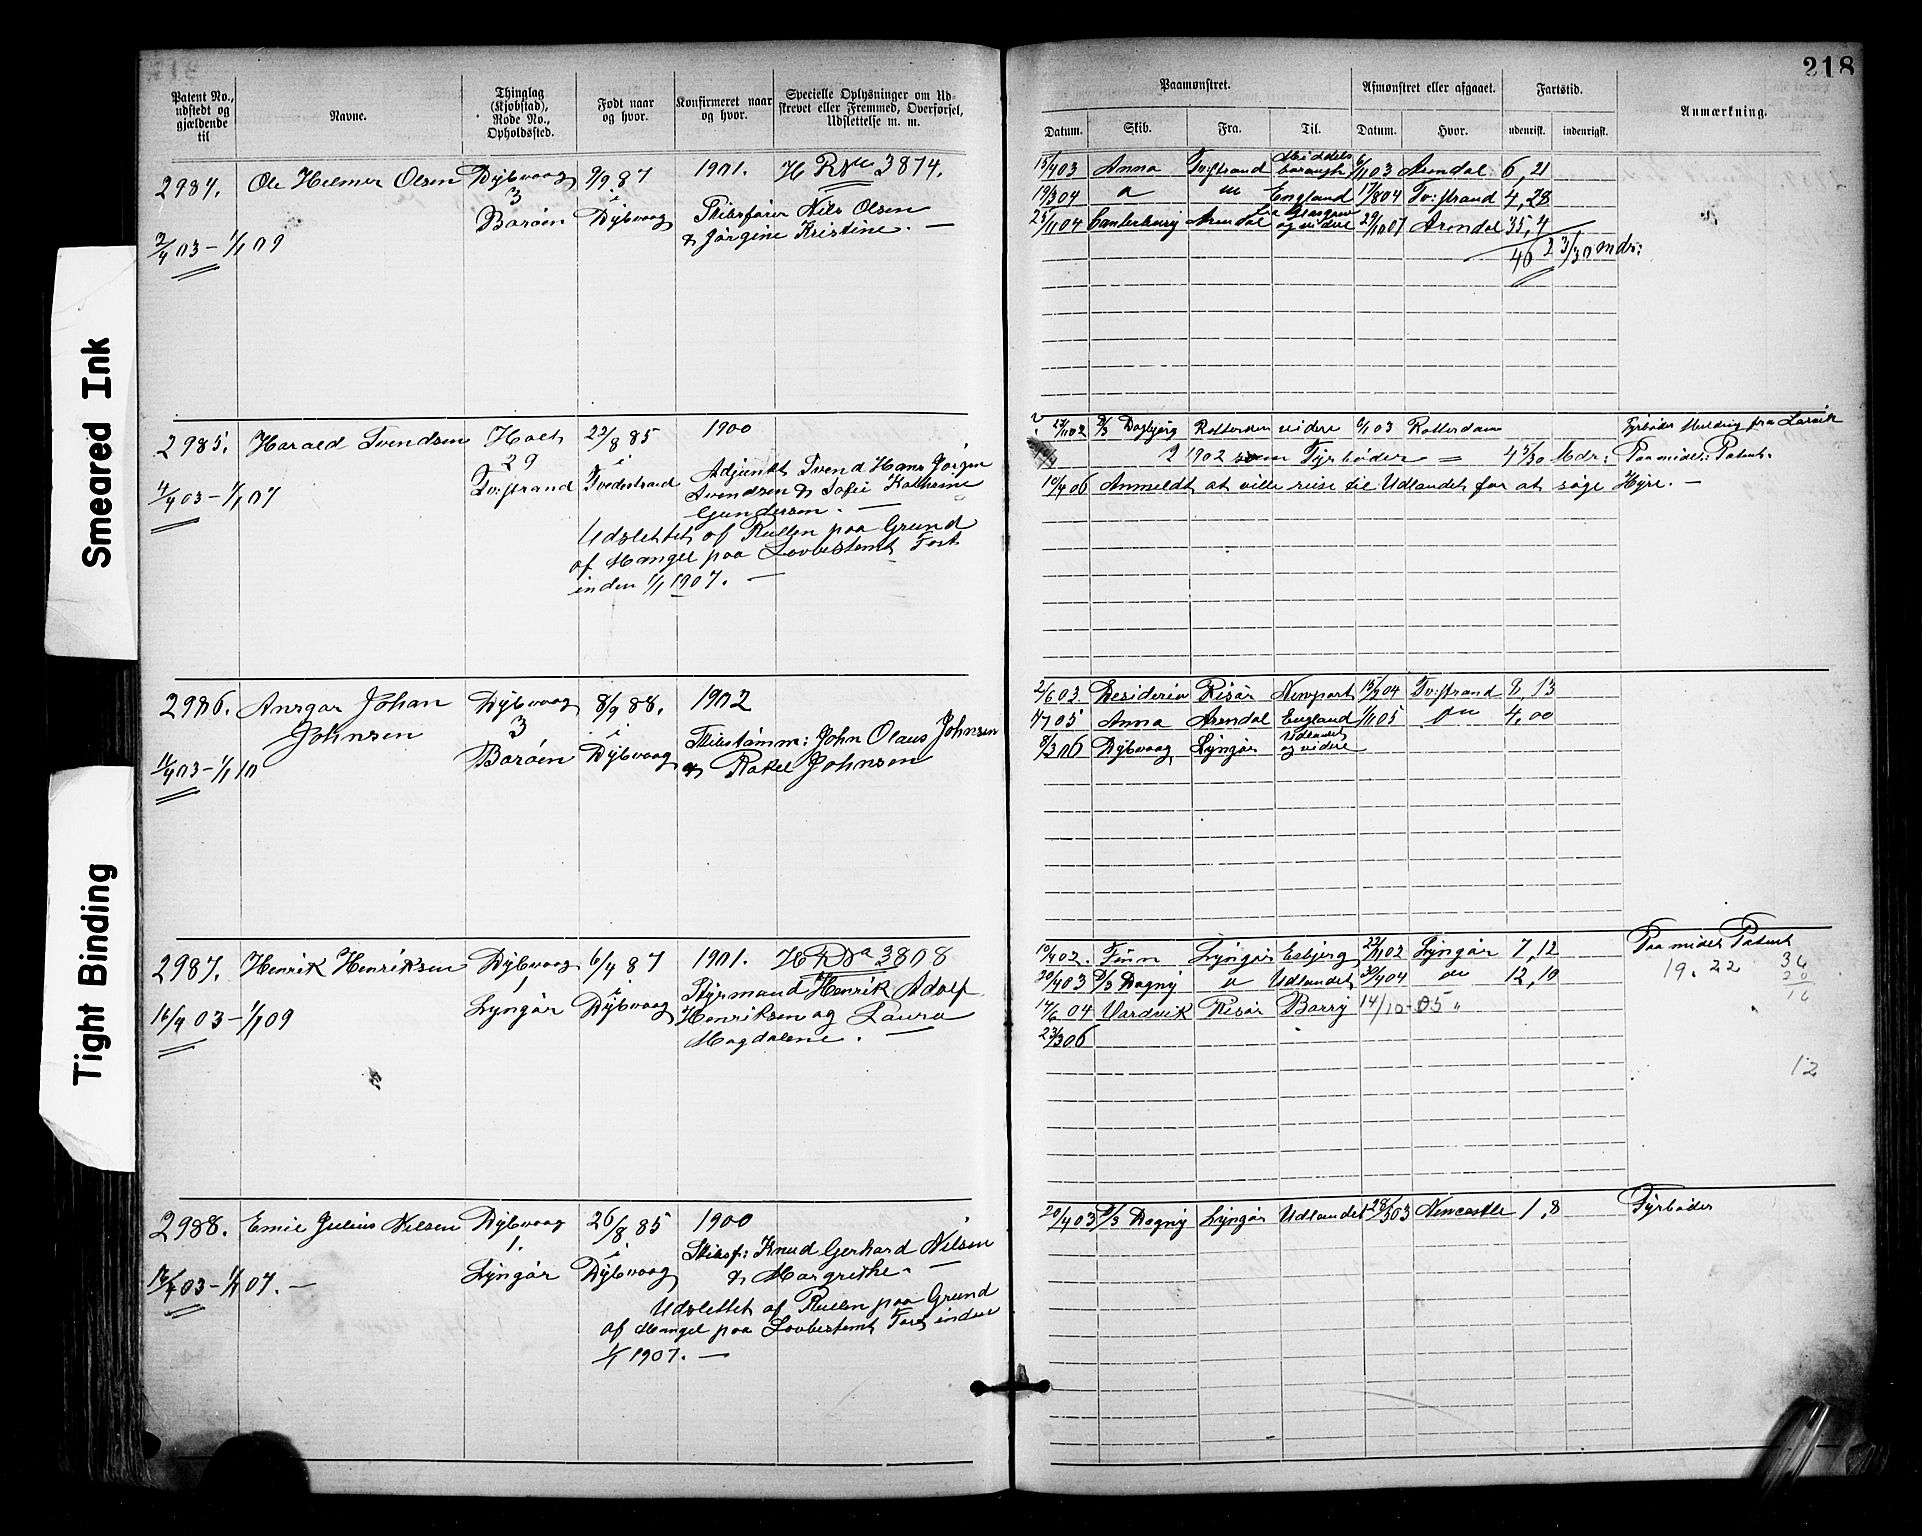 218
Smeared Ink
Tight Binding
Patent No., udstedt og gjældende til
Navne.
Thinglag (Kjøbstad), Rode No., Opholdssted.
Født naar og hvor.
Konfirmeret naar og hvor.
Specielle Oplysninger om Udskrevet eller Fremmed, Overførsel, Udslettelse m. m.
Paamønstret.
Afmønstret eller afgaaet.
Fartstid.
Anmærkning.
Datum.
Skib.
Fra.
Til.
Datum.
Hvor.
udenrikst.
indenrigst.
2984. Ole Helmer Olsen Dybvaag 9/9 87 1901. H R No 3874.
3 i
Borøen Dybvaag Skibsfører Nils Olsen
& Jørgine Kristine. —
2/4 03 – 1/1 09
15/4 03 Anna Tv:strand Middelsborough 6/11 03 Arendal 6, 21
19/3 04 " " England 17/8 04 Tv:strand 4, 28
25/11 04 Canterbury Arendal Glasgow og videre 29/10 07 Arendal 35, 4
46 23/30 mdr:
2985. Harald Svendsen Holt 22/8 85 1900
29 i
Tv:strand Tvedestrand
Adjunkt Svend Hans Jørgen
Svendsen & Sofie Kathrine
Gundersen. —
4/4 03 – 1/1 07
Udslettet af Rullen paa Grund
af Mangel paa Lovbestemt Fart
inden 1/1 1907. —
D/S Dagbjørg Rotterdam videre 6/1 03 Rotterdam
1902 som Fyrbøder = 4 5/30 Mdr: Paa midet: Patent.
10/4 06 Anmeldt at ville reise til Udlandet for at søge Hyre. —
Fyrbøder Melding fra Larvik
2986. Ansgar Johan Dybvaag 8/9 88. 1902
Johnsen 3 i
Borøen Dybvaag
Skibstømm: John Olaus Johnsen
& Rakel Johnsen
11/4 03 – 1/1 10
2/6 03 Desideria Risør Newport 13/2 04 Tv:strand 8, 13
Anna Arendal England Do 4, 00
8/3 06 Dybvaag Lyngør Udlandet og videre
2987. Henrik Henriksen Dybvaag 6/4 87 1901. H R No 3808
1 i
Lyngør Dybvaag
Styrmand Henrik Adolf
Henriksen og Laura
Magdalene. —
16/4 03 – 1/1 09
Finn Lyngør Esbjerg Lyngør 7, 12
20/4 03 D/S Dagny " Udlandet 30/4 04 do 12, 10
14/6 04 Vardvik Risør Barry 14/10-05 "
23/3 06
Paa midet Patent
19. 22
36
20
16
12
2988. Emil Julius Nilsen Dybvaag 26/8 85 1900
1. i
Lyngør Dybvaag
Skibsf: Knud Gerhard Nilsen
& Margrethe. —
03 – 1/1 07. —
Udslettet af Rullen paa Grund
af Mangel paa Lovbestemt Fart inden
1/1 1907. —
20/4 03 D/S Dagny Lyngør Udlandet 28/5 03 Newcastle 1, 8 Fyrbøder